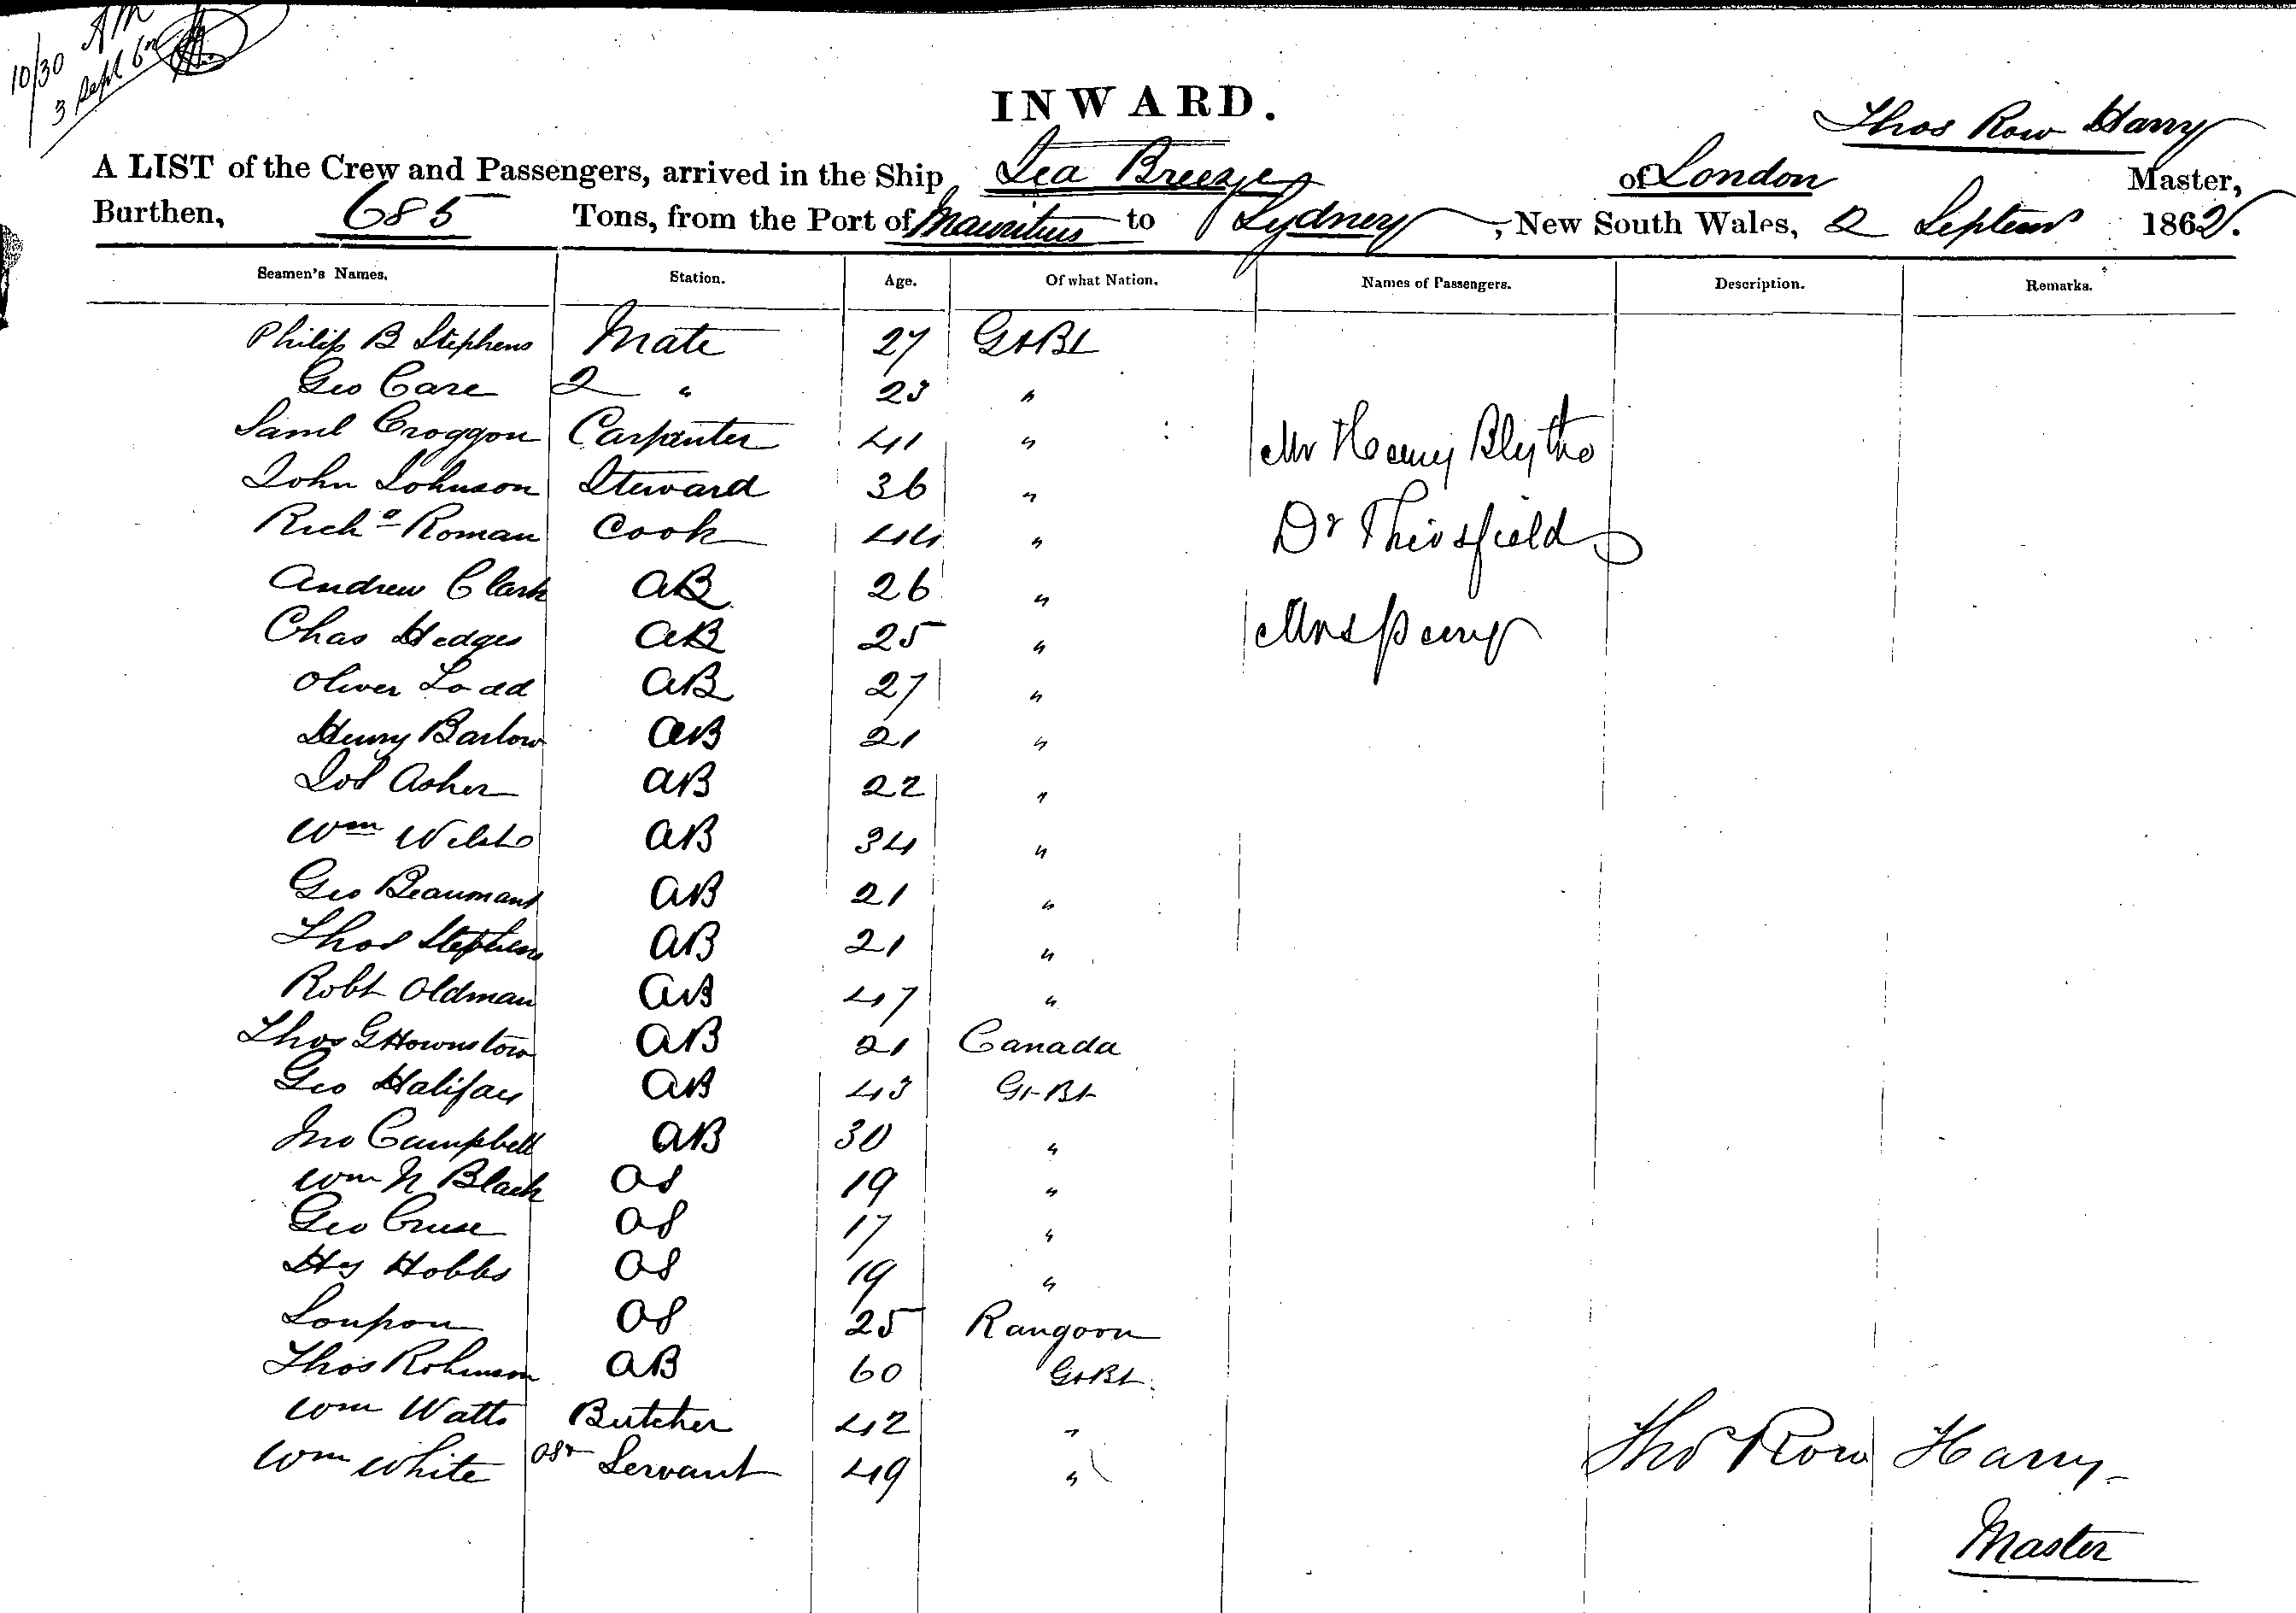 10/30 AM
3 Sept 6
INWARD.
Thos Row Harry
A LIST of the Crew and Passengers, arrived in the Ship Sea Breeze of London Master,
Burthen, 685 Tons, from the Port of Mauritius to Sydney, New South Wales, 2 Septem 1862.
Seamen's Names. Station. Age. Of what Nation. Names of Passengers. Description. Remarks.
Philip B Stephens Mate 27 Gt Bt
Geo Care 2 " 23 "
Saml Croggon Carpenter 41 " Mr Henry Blythe
John Johnson Steward 36 "
Richd Roman Cook 44 " Dr
Andrew Clark AB 26 "
Chas Hedges AB 25 " Mrs Perry
Oliver Ladd AB 27 "
Henry Barlow AB 21 "
Jos Asher AB 22 "
Wm Welsh AB 34 "
Geo Beaumant AB 21 "
Thos Stephens AB 21 "
Robt Oldman AB 47 "
Thos AB 21 Canada
Geo Halifax AB 43 Gt Bt
Jno Campbell AB 30 "
Wm N Black OS 19 "
Geo Cruse OS 17 "
Hy Hobbs OS 19 "
Soupon OS 25 Rangoon
Thos Robinson AB 60 Gt Bt
Wm Watts Butcher 42 "
Wm White Servant 49 "
Thos Row Harry
Master